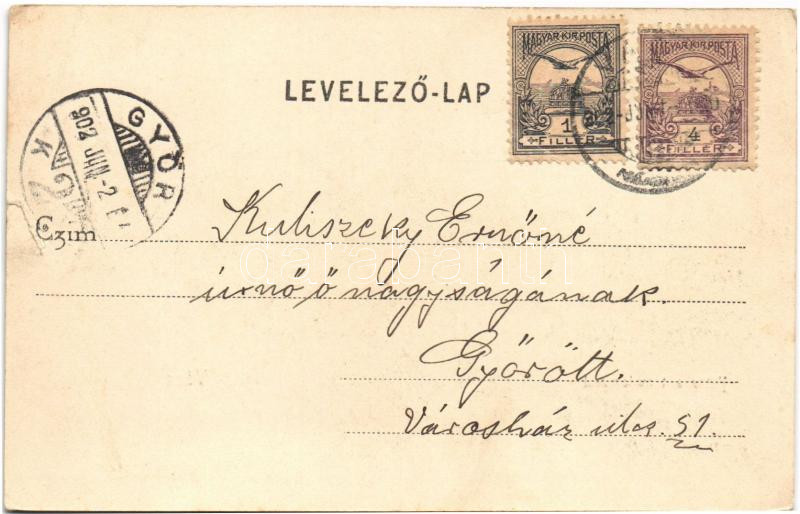 LEVELEZŐ-LAP
MAGYAR·KIR·POSTA
1
FILLÉR
MAGYAR·KIR·POSTA
4
FILLÉR
GYŐR
Czim
Kuliszeky Ernőné
úrnő ő nagyságának.
Győrött.
Városház utcz. 51.
darabanth